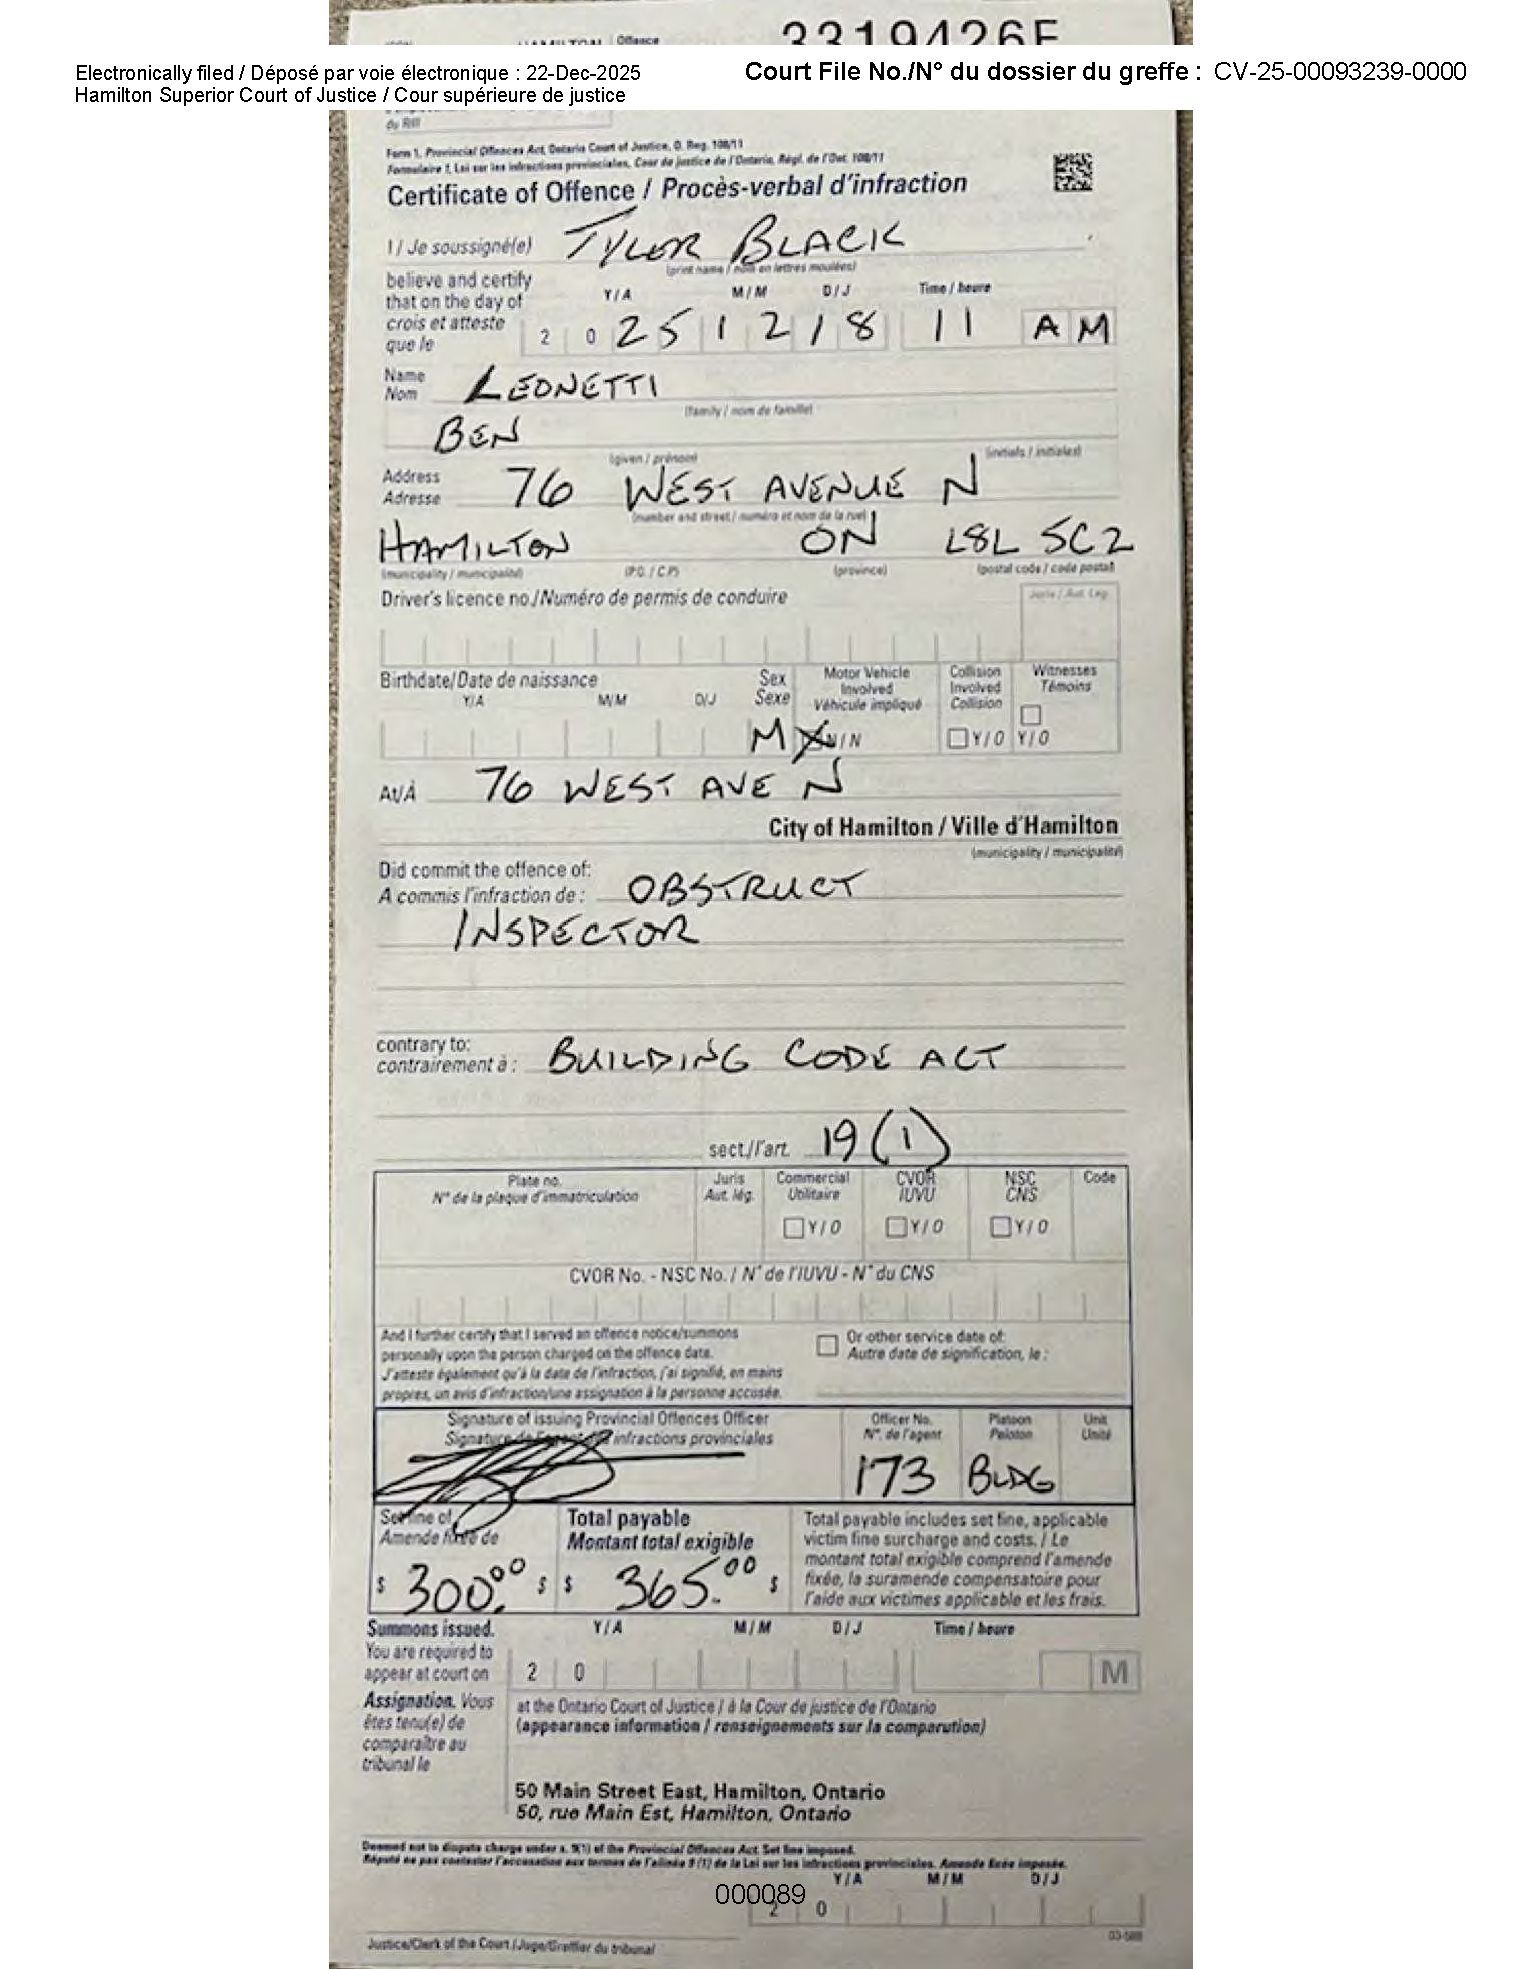 HAMILTON Offence 3319426F
Electronically filed / Déposé par voie électronique : 22-Dec-2025
Hamilton Superior Court of Justice / Cour supérieure de justice
Court File No./N° du dossier du greffe : CV-25-00093239-0000
du RIII
Form 1, Provincial Offences Act, Ontario Court of Justice, O. Reg. 108/11
Formulaire 1, Loi sur les infractions provinciales, Cour de justice de l'Ontario, Règl. de l'Ont. 108/11
Certificate of Offence / Procès-verbal d'infraction
I / Je soussigné(e) TYLOR BLACK
(print name / nom en lettres moulées)
believe and certify
that on the day of Y/A M/M D/J Time / heure
crois et atteste
que le 2 0 2 5 1 2 1 8 11 A M
Name
Nom LEONETTI
(family / nom de famille)
BEN
(given / prénom) (initials / initiales)
Address
Adresse 76 WEST AVENUE N
(number and street / numéro et nom de la rue)
HAMILTON ON L8L 5C2
(municipality / municipalité) (P.O. / C.P.) (province) (postal code / code postal)
Driver's licence no./Numéro de permis de conduire Juris / Aut. Lég.
Birthdate/Date de naissance Sex Motor Vehicle Collision Witnesses
Y/A M/M D/J Sexe Involved Involved Témoins
Véhicule impliqué Collision
M N/N Y/O Y/O
At/À 76 WEST AVE N
City of Hamilton / Ville d'Hamilton
(municipality / municipalité)
Did commit the offence of:
A commis l'infraction de : OBSTRUCT
INSPECTOR
contrary to:
contrairement à : BUILDING CODE ACT
sect./l'art. 19 (1)
Plate no. Juris Commercial CVOR NSC Code
N° de la plaque d'immatriculation Aut. lég. Utilitaire IUVU CNS
Y/O Y/O Y/O
CVOR No. - NSC No. / N° de l'IUVU - N° du CNS
And I further certify that I served an offence notice/summons
personally upon the person charged on the offence date.
J'atteste également qu'à la date de l'infraction, j'ai signifié, en mains
propres, un avis d'infraction/une assignation à la personne accusée.
Or other service date of:
Autre date de signification, le :
Signature of issuing Provincial Offences Officer Officer No. Platoon Unit
Signature de l'agent des infractions provinciales N°. de l'agent Peloton Unité
173 BLDG
Set fine of Total payable
Amende fixée de Montant total exigible
$ 300.00 $ $ 365.00 $
Total payable includes set fine, applicable
victim fine surcharge and costs. / Le
montant total exigible comprend l'amende
fixée, la suramende compensatoire pour
l'aide aux victimes applicable et les frais.
Summons issued. Y/A M/M D/J Time / heure
You are required to
appear at court on 2 0 M
Assignation. Vous
êtes tenu(e) de
comparaître au
tribunal le
at the Ontario Court of Justice / à la Cour de justice de l'Ontario
(appearance information / renseignements sur la comparution)
50 Main Street East, Hamilton, Ontario
50, rue Main Est, Hamilton, Ontario
Deemed not to dispute charge under s. 9(1) of the Provincial Offences Act. Set fine imposed.
Réputé ne pas contester l'accusation aux termes de l'alinéa 9 (1) de la Loi sur les infractions provinciales. Amende fixée imposée.
Y/A M/M D/J
000089
2 0
03-588
Justice/Clerk of the Court / Juge/Greffier du tribunal